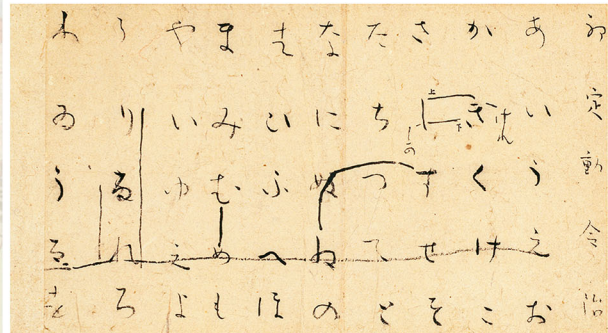 定動令治
あいうえお
かきくけこ
さしすせそ
たちつてと
なにぬねの
はひふへほ
まみむめも
やいゆえよ
らりるれろ
わゐうゑを